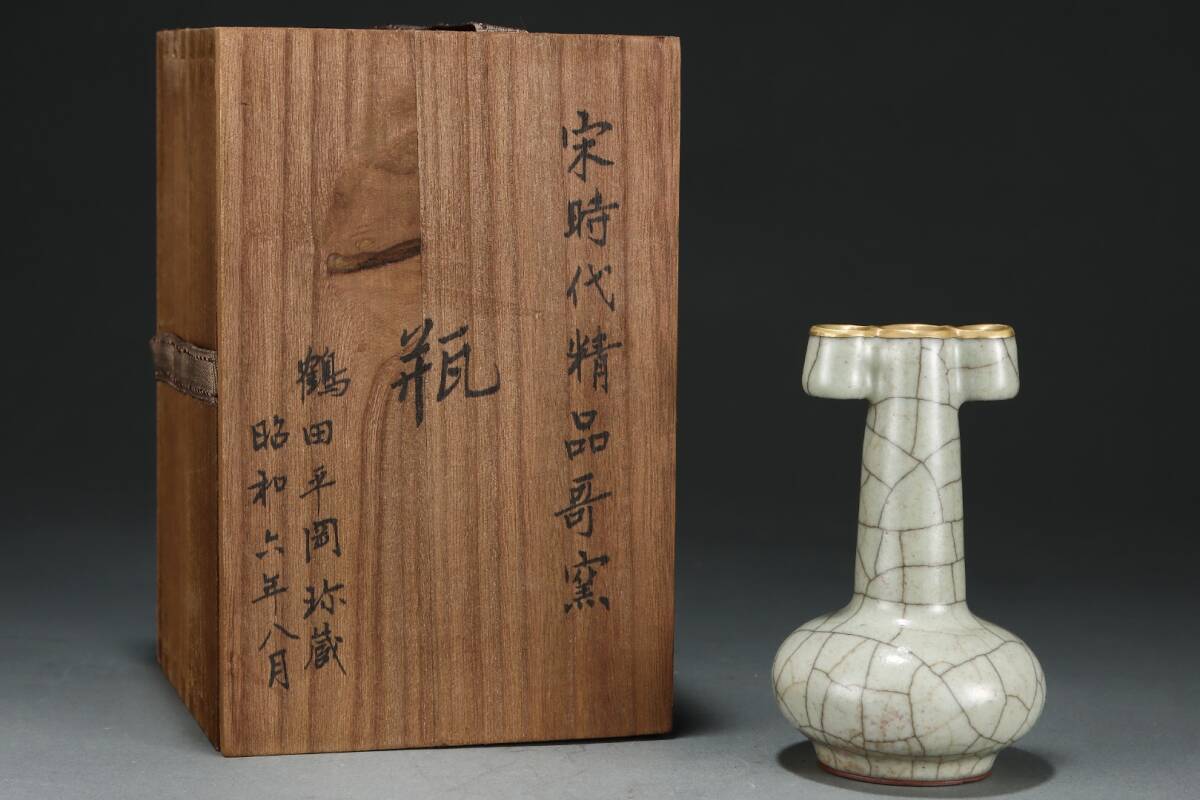 宋時代精品哥窯
瓶
鶴田平岡珎蔵
昭和六年八月